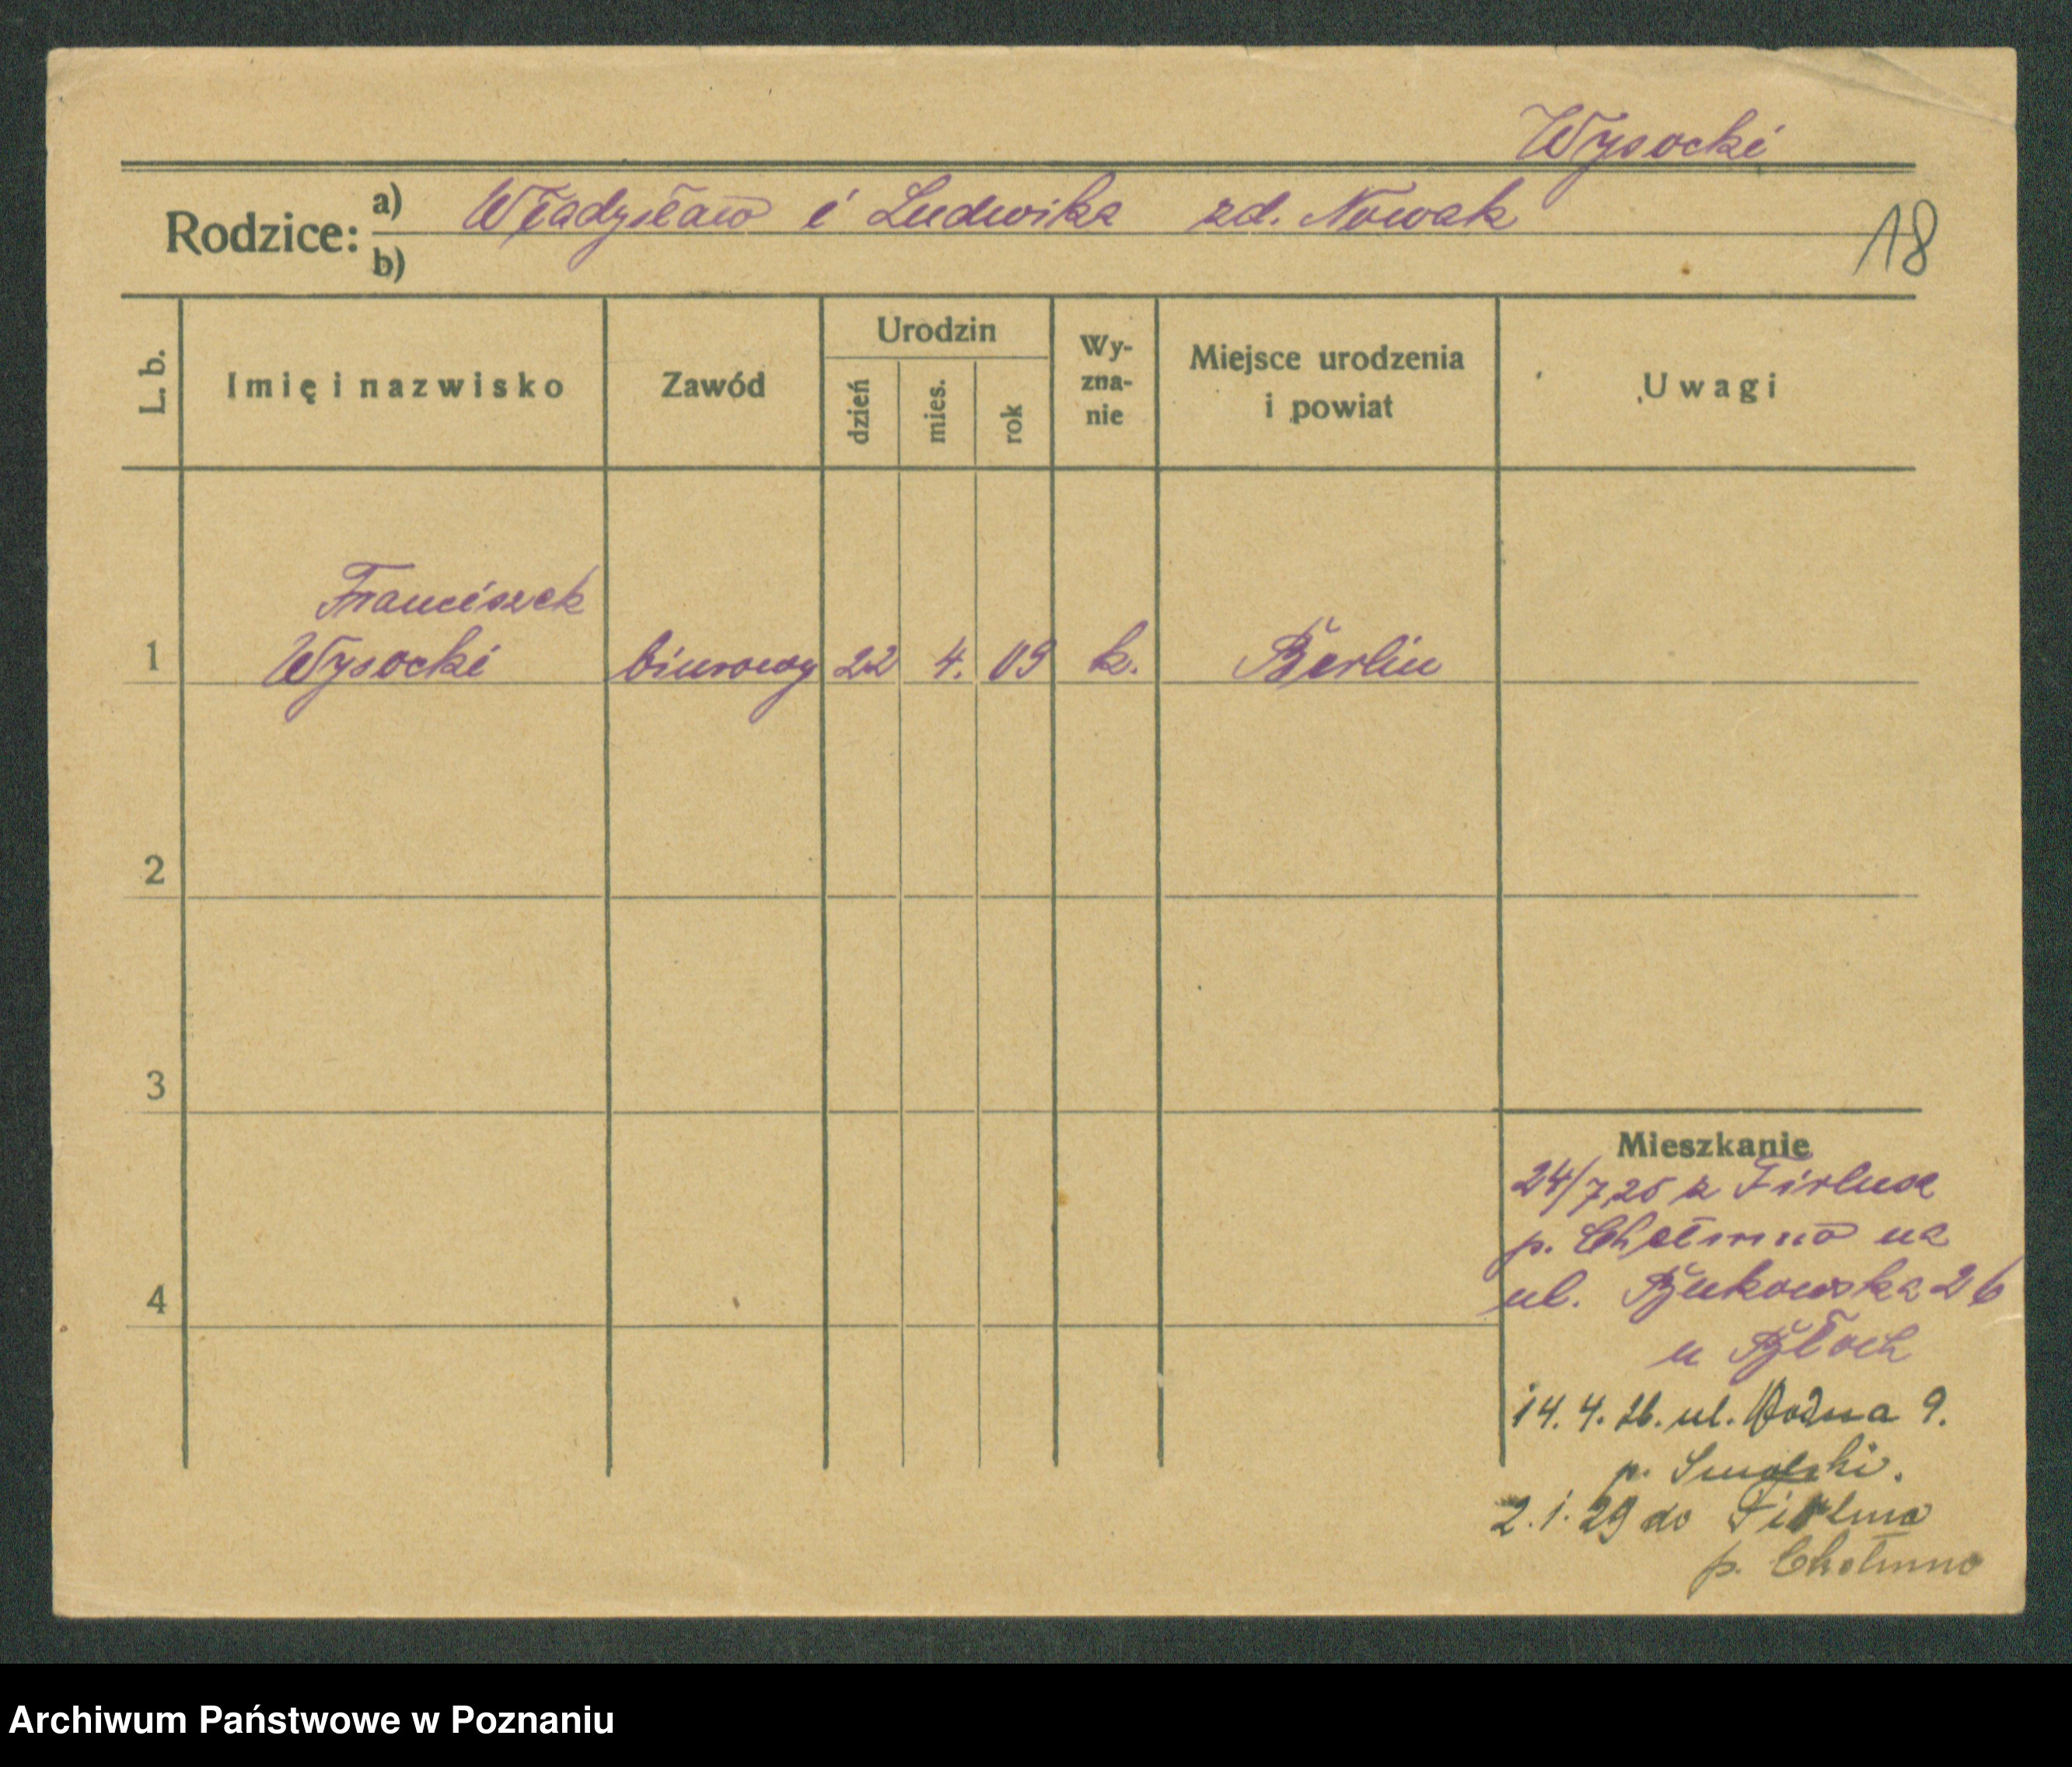 Wysocki
Rodzice: a) Władysław i Ludwika zd. Nowak
b)
18
L. b. Imię i nazwisko Zawód Urodzin dzień mies. rok Wy-zna-nie Miejsce urodzenia i powiat Uwagi
Franciszek
1 Wysocki biurowy 22 4. 09 k. Berlin
2
3
4
Mieszkanie
24/7 25 z
p. Chełmno na
ul. Bukowska 26
u Błoch
14. 4. 26. ul. Woźna 9.
p.
2. 1. 29 do
p. Chełmno
Archiwum Państwowe w Poznaniu